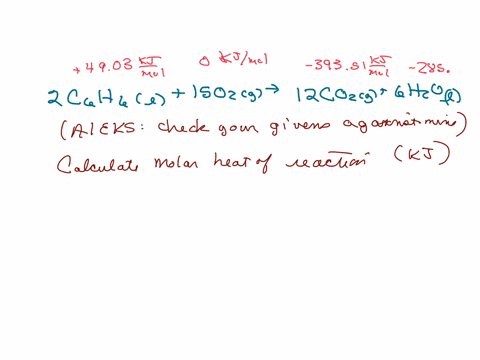 +49.03 KJ/mol 0 KJ/mol -393.51 KJ/mol -285.
2C6H6(l) + 15O2(g) → 12CO2(g) + 6H2O(l)
(ALEKS: check your givens against mine)
Calculate molar heat of reaction (KJ)